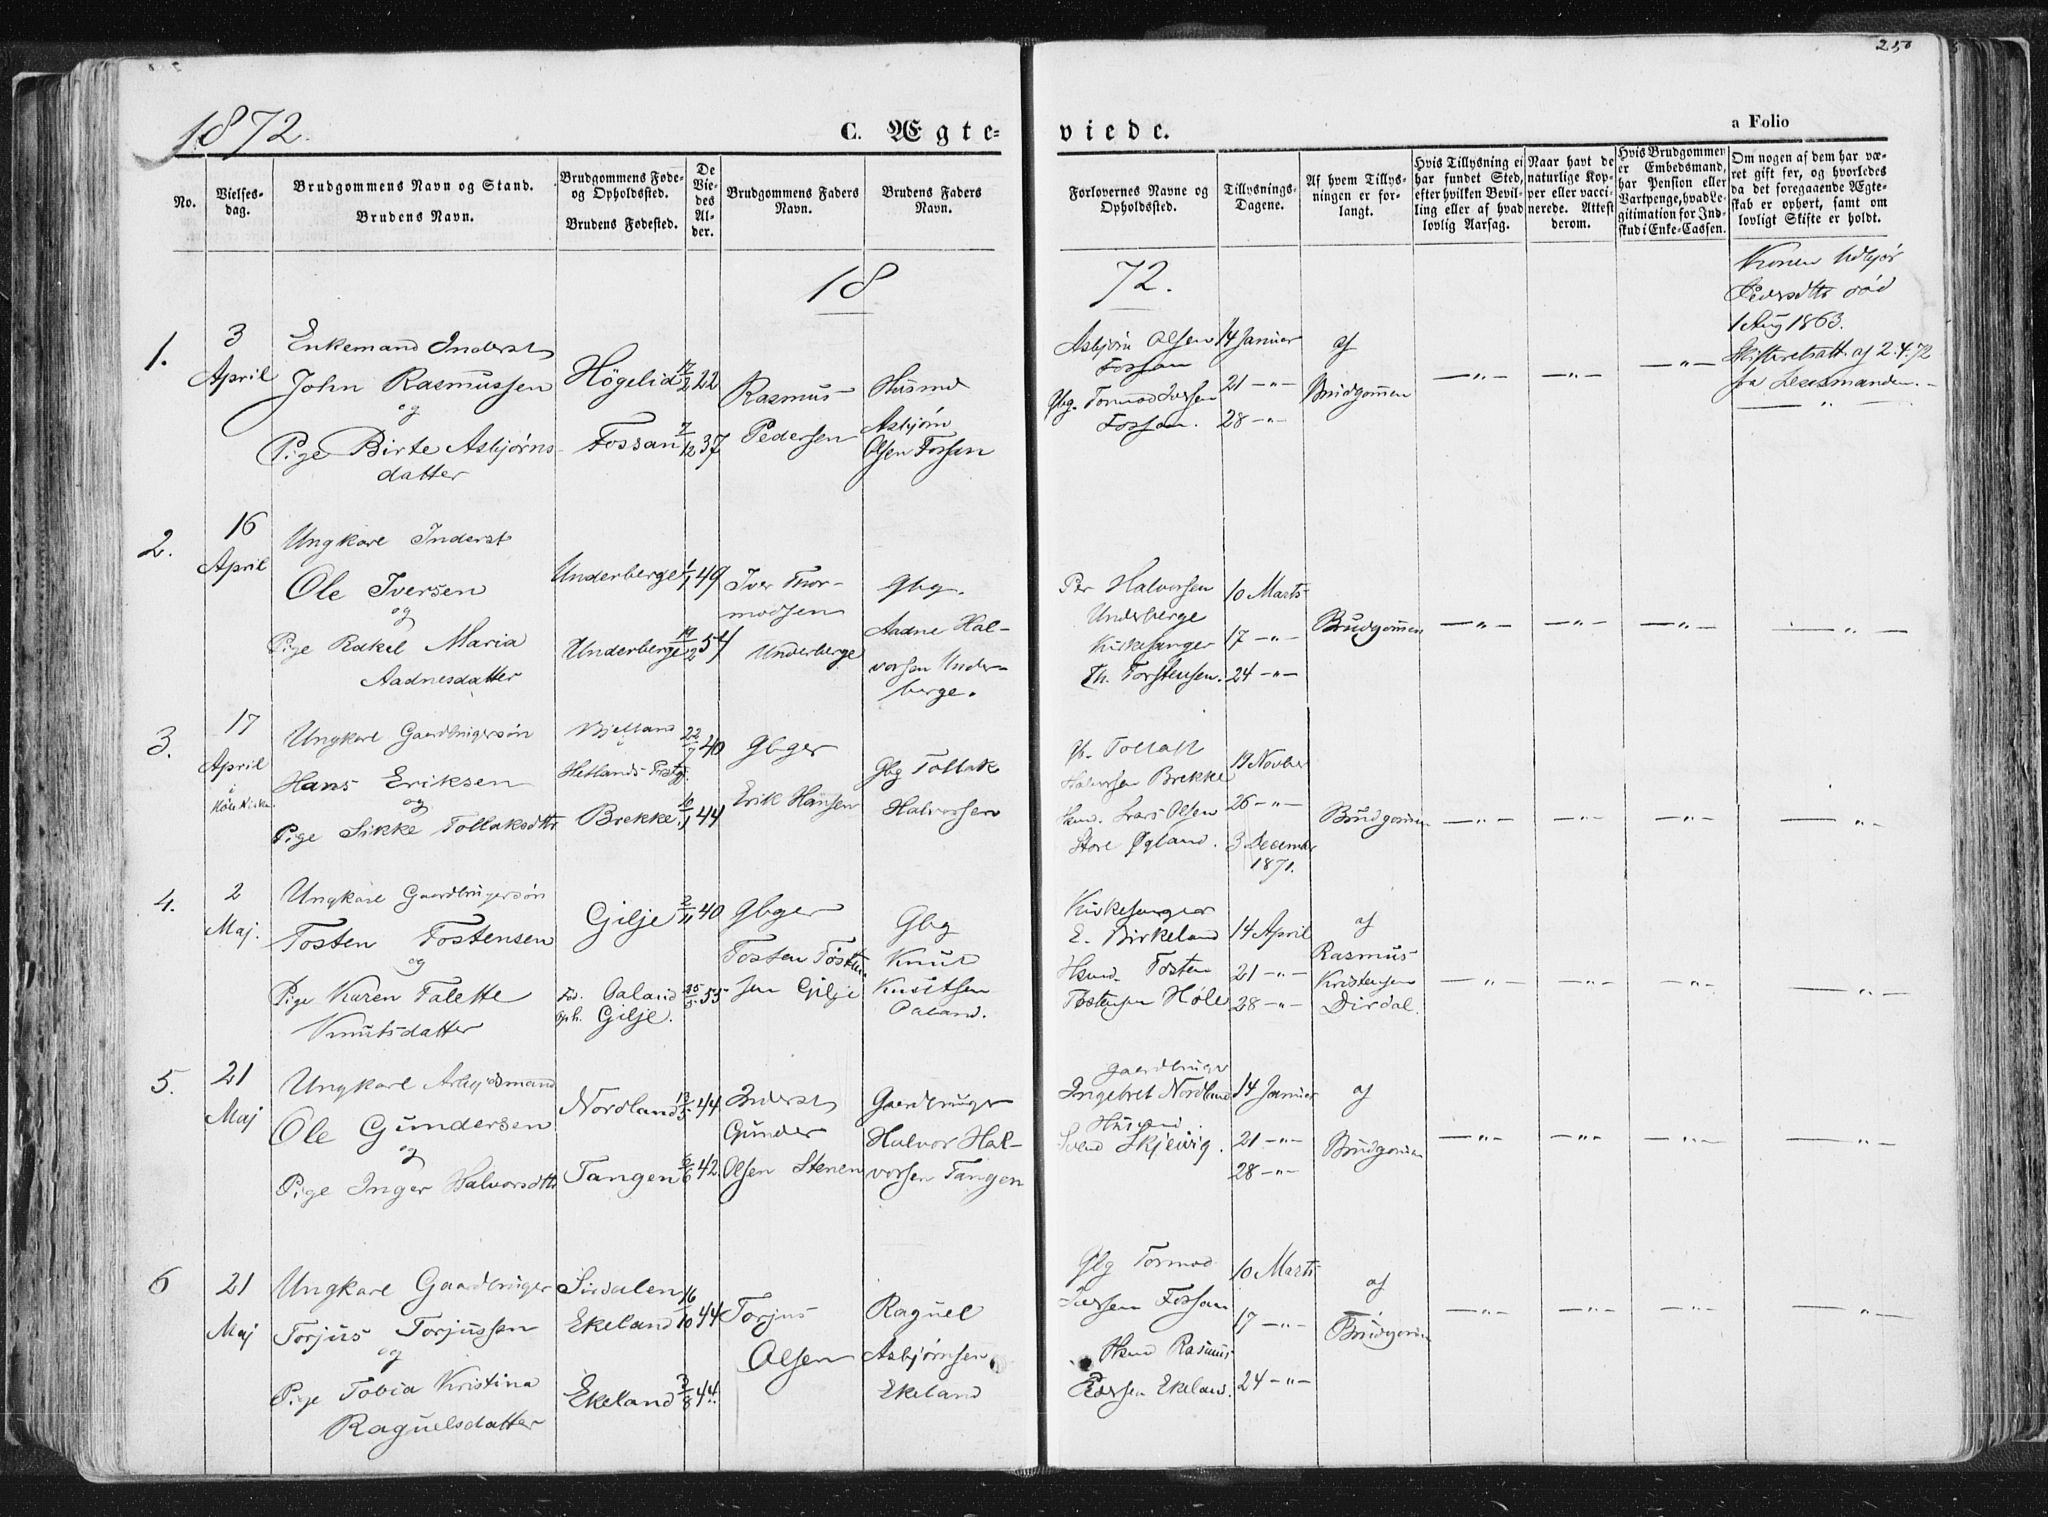 250
1872.
C. Ægte=
viede.
a Folio
No.
Vielses-
dag.
Brudgommens Navn og Stand.
Brudens Navn.
Brudgommens Føde-
og Opholdssted.
Brudens Fødested.
De
Vie-
des
Al-
der.
Brudgommens Faders
Navn.
Brudens Faders
Navn.
Forlovernes Navne og
Opholdssted.
Tillysnings-
Dagene.
Af hvem Tillys-
ningen er for-
langt.
Hvis Tillysning ei
har fundet Sted,
efter hvilken Bevil-
ling eller af hvad
lovlig Aarsag.
Naar havt de
naturlige Kop-
per eller vacci-
nerede. Attest
derom.
Hvis Brudgommen
er Embedsmand,
har Pension eller
Vartpenge, hvad Le-
gitimation for Ind-
skud i Enke-Cassen.
Om nogen af dem har væ-
ret gift før, og hvorledes
da det foregaaende Ægte-
skab er ophørt, samt om
lovligt Skifte er holdt.
18
72.
1.
3
April
Enkemand Inderst
John Rasmussen
og
Pige Birte Asbjørns-
datter
Högelid
Fossan
12/2 22
7/12 37
Rasmus
Pedersen
Husmd
Asbjørn
Olsen Fossan
Asbjørn Olsen
Fossan
Gbg. Tormod Iversen
Fossan.
14 Januar
21 -"-
28 -"-
af
Brudgommen
-"-
-"-
-"-
Konen
Pedersdtr død
1 Aug 1863.
Skifteretsatt. af 2.4.72
fra Lensmanden.
-"-
2.
16
April
Ungkarl Inderst
Ole Iversen
og
Pige Rakel Maria
Aadnesdatter
Underberge
Underberge
1/1 49
19/2 54
Iver Thor-
modsen
Underberge
Gbg.
Aadne Hal-
vorsen Under-
berge.
Per Halvorsen
Underberge
Kirkesanger
Th. Torstensen.
10 Marts
17 -"-
24 -"-
Brudgommen
-"-
-"-
-"-
-"-
3.
17
April
i
Høle Kirke
Ungkarl Gaardbrugersøn
Hans Eriksen
og
Pige Sikke Tollaksdtr
Bjelland
i
Hetlands Prstgj.
Brekke
22/7 40
10/1 44
Gbger
Erik Hansen
Gbg Tollak
Halvorsen
Gb. Tollak
Halvorsen Brekke
Hsmd. Lars Olsen
Store Øgland.
19 Novber
26 -"-
3 December
1871.
Brudgommen
-"-
-"-
-"-
-"-
4.
2
Maj.
Ungkarl Gaardbrugersøn
Tosten Tostensen
og
Pige Karen Talette
Knutsdatter
Gilje
Fd. Paland
oph. Gilje.
2/11 40
25/5 55
Gbger
Tosten Tosten-
sen Gilje
Gbg
Knut
Knutsen
Paland.
Kirkesanger
E. Birkeland
Hsmd. Tosten
Tostensen Høle
14 April
21 -"-
28 -"-
af
Rasmus
Kristensen
Dirdal.
-"-
-"-
-"-
-"-
5.
21
Maj
Ungkarl Arbejdsmand
Ole Gundersen
og
Pige Inger Halvorsdtr
Nordland
Tangen
13/5 44
6/6 42
Inderst
Gunder
Olsen Stenen
Gaardbruger
Halvor Hal-
vorsen Tangen
Gaardbruger
Ingebret Nordland
Husmd.
Svend Skjelvig.
14 Januar
21 -"-
28 -"-
af
Brudgommen
-"-
-"-
-"-
-"-
6
21
Maj
Ungkarl Gaardbruger
Torjus Torjussen
og
Pige Tobia Kristina
Raguelsdatter
Sirdalen
Ekeland
Ekeland
16/10 44
3/8 44.
Torjus
Olsen
Raguel
Asbjørnsen
Ekeland
Gbg Tormod
Iversen Fossan
Hsmd Rasmus
Pedersen Ekeland.
10 Marts
17 -"-
24 -"-
af
Brudgommen
-"-
-"-
-"-
-"-